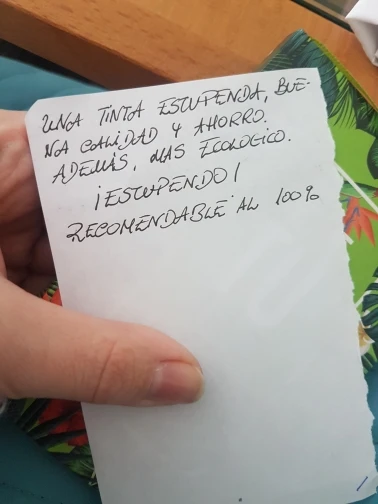 UNA TINTA ESTUPENDA, BUE-
NA CALIDAD Y AHORRO.
ADEMÁS, MAS ECOLOGICO.
¡ESTUPENDO!
RECOMENDABLE AL 100%